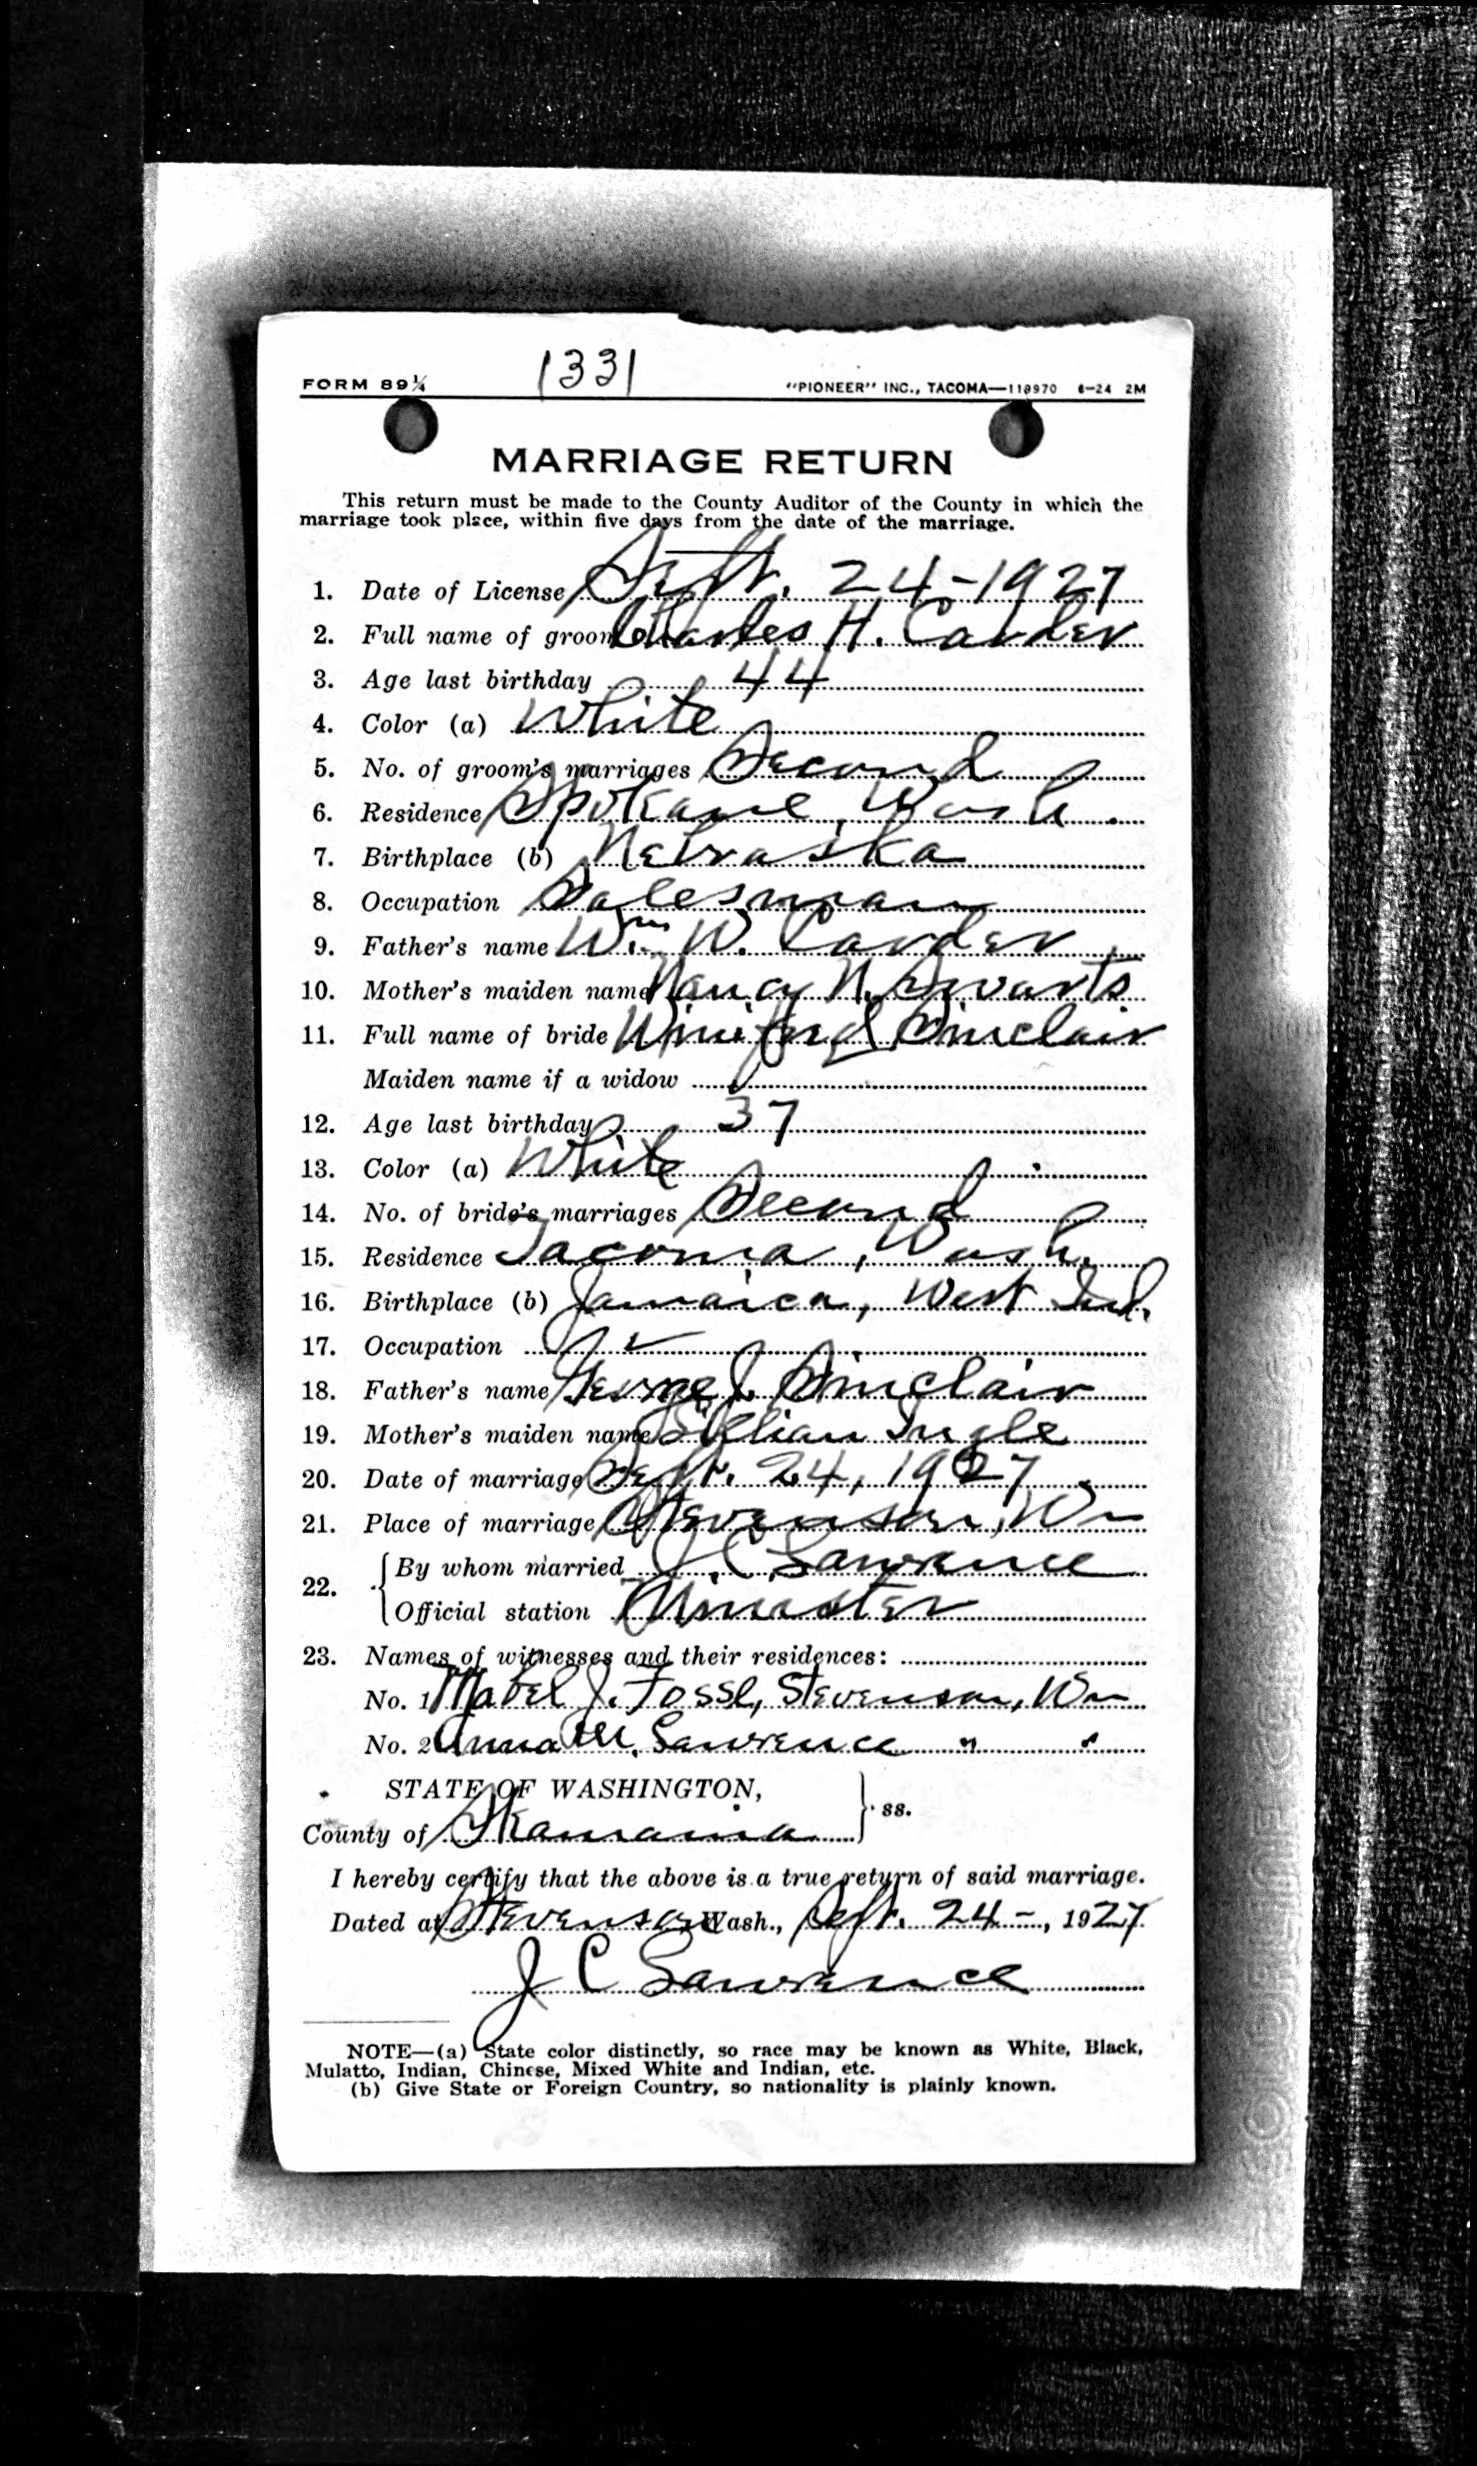 1331
FORM 89¼ "PIONEER" INC., TACOMA—118970 6-24 2M
MARRIAGE RETURN
This return must be made to the County Auditor of the County in which the
marriage took place, within five days from the date of the marriage.
1. Date of License Sept. 24-1927
2. Full name of groom Charles H. Carder
3. Age last birthday 44
4. Color (a) White
5. No. of groom's marriages Second
6. Residence Spokane, Wash.
7. Birthplace (b) Nebraska
8. Occupation Salesman
9. Father's name Wm. W. Carder
10. Mother's maiden name Nancy N. Swarts
11. Full name of bride Winifred Sinclair
Maiden name if a widow
12. Age last birthday 37
13. Color (a) White
14. No. of bride's marriages Second
15. Residence Tacoma, Wash.
16. Birthplace (b) Jamaica, West Ind.
17. Occupation
18. Father's name George J. Sinclair
19. Mother's maiden name Lillian Ingle
20. Date of marriage Sept. 24, 1927
21. Place of marriage Stevenson, Wn
22. By whom married J. C. Lawrence
Official station Minister
23. Names of witnesses and their residences:
No. 1 Mabel J. Fosse, Stevenson, Wn
No. 2 Anna M. Lawrence " "
STATE OF WASHINGTON,
County of Skamania ss.
I hereby certify that the above is a true return of said marriage.
Dated at Stevenson Wash., Sept. 24-, 1927
J C Lawrence
NOTE—(a) State color distinctly, so race may be known as White, Black,
Mulatto, Indian, Chinese, Mixed White and Indian, etc.
(b) Give State or Foreign Country, so nationality is plainly known.